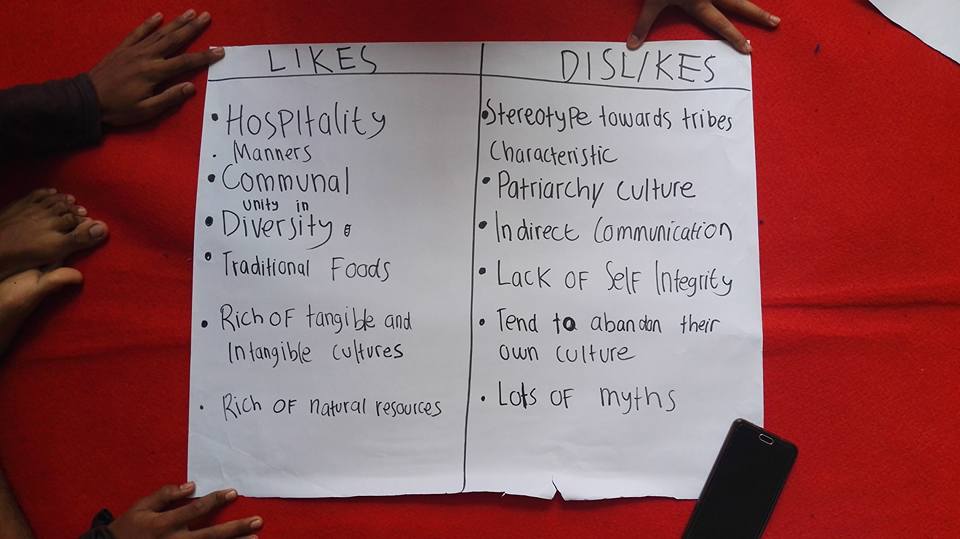 LIKES
• Hospitality
• Manners
• Communal
unity in
• Diversity
• Traditional Foods
• Rich of tangible and
Intangible cultures
• Rich of natural resources
DISLIKES
• Stereotype towards tribes
Characteristic
• Patriarchy culture
• Indirect Communication
• Lack of Self Integrity
• Tend to abandan their
own culture
• Lots of myths